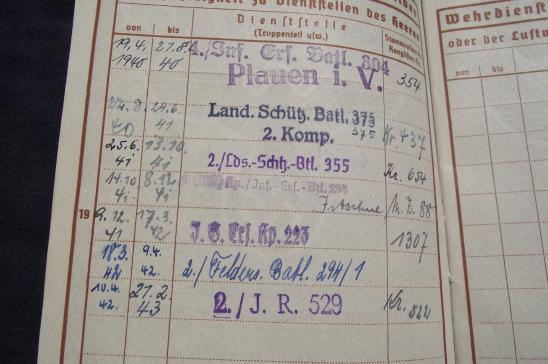 zu Dienststellen des Heeres
von bis Dienststelle
(Truppenteil usw.)
19.4. 27.8. 4./Inf. Ers. Batl. 304
1940 40 Plauen i. V. 354
Land. Schütz. Batl. 375
24.6. 2. Komp. 375 Kr. 437
40 41
25.6. 13.10. 2./Lds.-Schtz.-Btl. 355 Kr. 654
41 41
14.10 8.12 Kp./Inf.-Ers.-Btl.
41 41
19 9.12. 17.3. J. G. Ers. Kp. 223 1307
41 42
18.3. 9.4. 2./Felders. Batl. 294/1
42 42.
10.4. 21.2. 2./J. R. 529 Kr. 522
42. 43
Wehrdienst
oder der Luftw
von bis